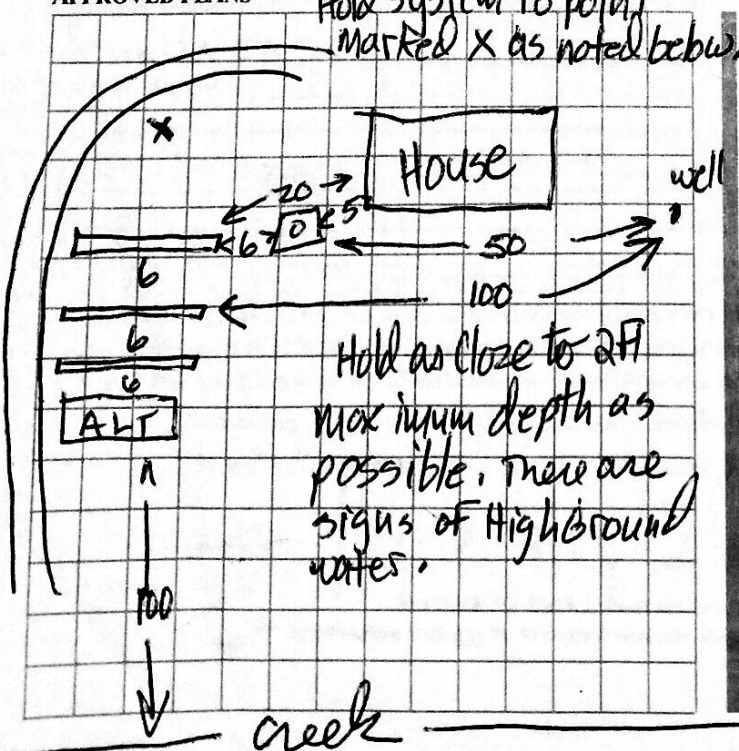 APPROVED PLANS
Hold system to point
Marked X as noted below.
X
House
well
20
5
6
0
50
6
100
6
Hold as Close to 2Ft
6
maximum depth as
ALT
possible. There are
signs of High Ground
water.
100
creek